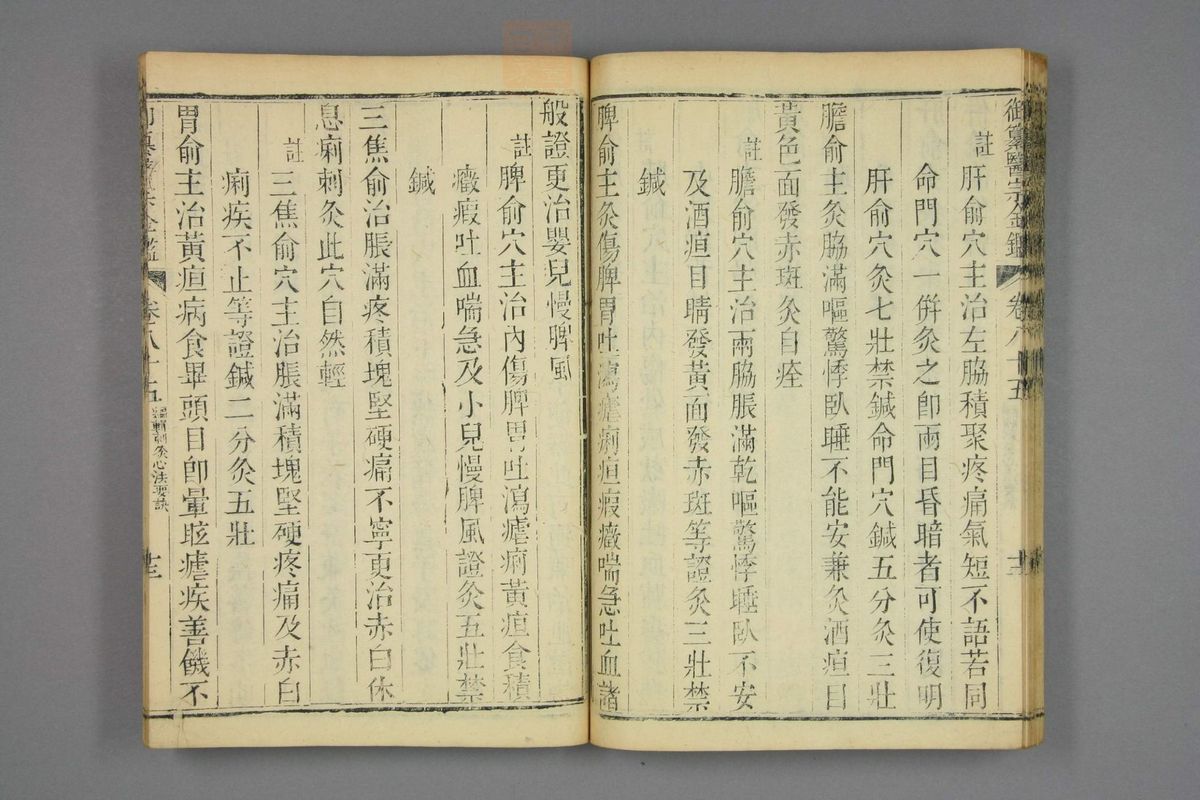 御纂醫宗金鑑 卷八十五 十二
註 肝俞穴主治左脇積聚疼痛氣短不語若同
命門穴一併灸之卽兩目昏暗者可使復明
肝俞穴灸七壯禁鍼命門穴鍼五分灸三壯
膽俞主灸脇滿嘔驚悸臥睡不能安兼灸酒疸目
黃色面發赤斑灸自痊
註 膽俞穴主治兩脇脹滿乾嘔驚悸睡臥不安
及酒疸目睛發黃面發赤斑等證灸三壯禁
鍼
脾俞主灸傷脾胃吐瀉瘧痢疸瘕癥喘急吐血諸
般證更治嬰兒慢脾風
註 脾俞穴主治內傷脾胃吐瀉瘧痢黃疸食積
癥瘕吐血喘急及小兒慢脾風證灸五壯禁
鍼
三焦俞治脹滿疼積塊堅硬痛不寧更治赤白休
息痢刺灸此穴自然輕
註 三焦俞穴主治脹滿積塊堅硬疼痛及赤白
痢疾不止等證鍼二分灸五壯
胃俞主治黃疸病食畢頭目卽暈眩瘧疾善饑不
金鑑 卷八十五 編輯刺灸心法要訣 十三